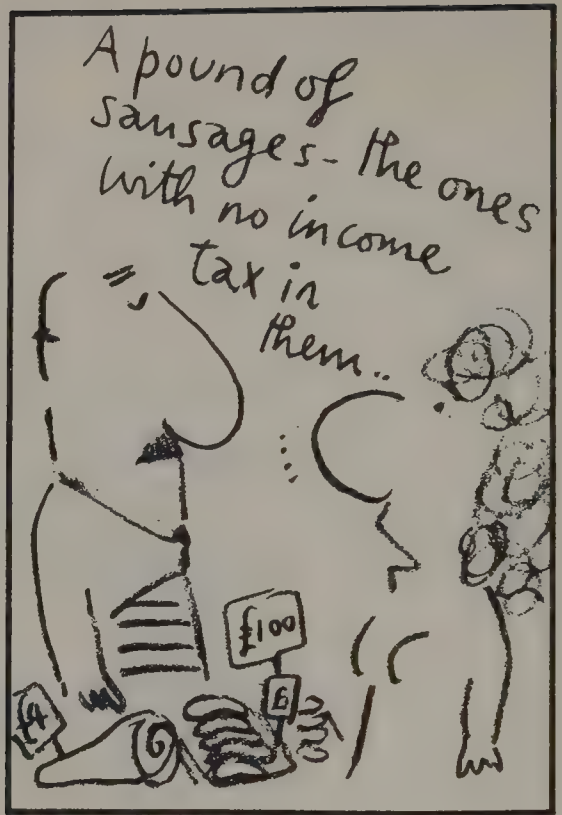 A pound of
sausages - the ones
with no income
tax in
them..
£100
6
£4